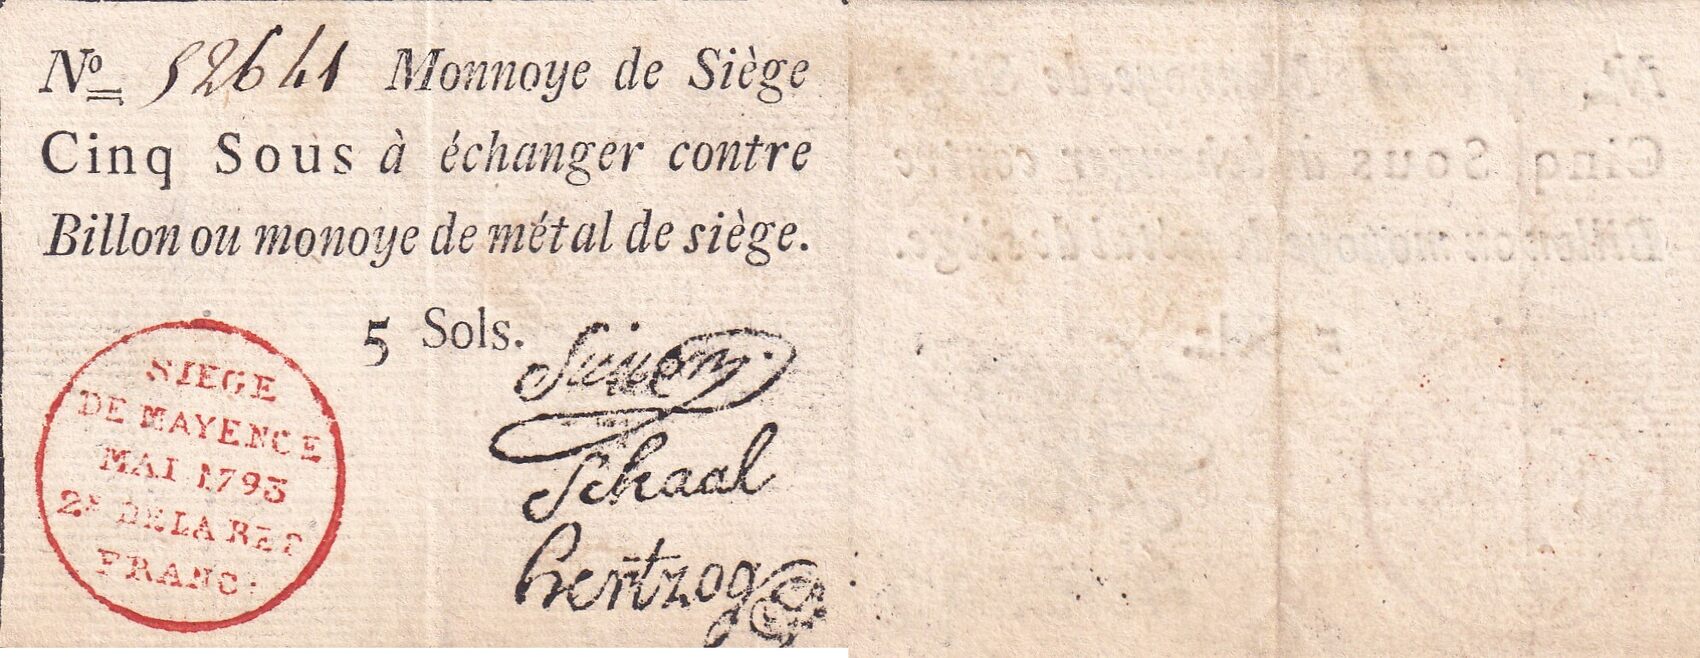 Nº 52641 Monnoye de Siège
Cinq Sous à échanger contre
Billon ou monoye de métal de siège.
5 Sols.
SIEGE
DE MAYENCE
MAI 1793
2ᴱ DE LA REP
FRANC:
Simon.
Schaal
hentzog